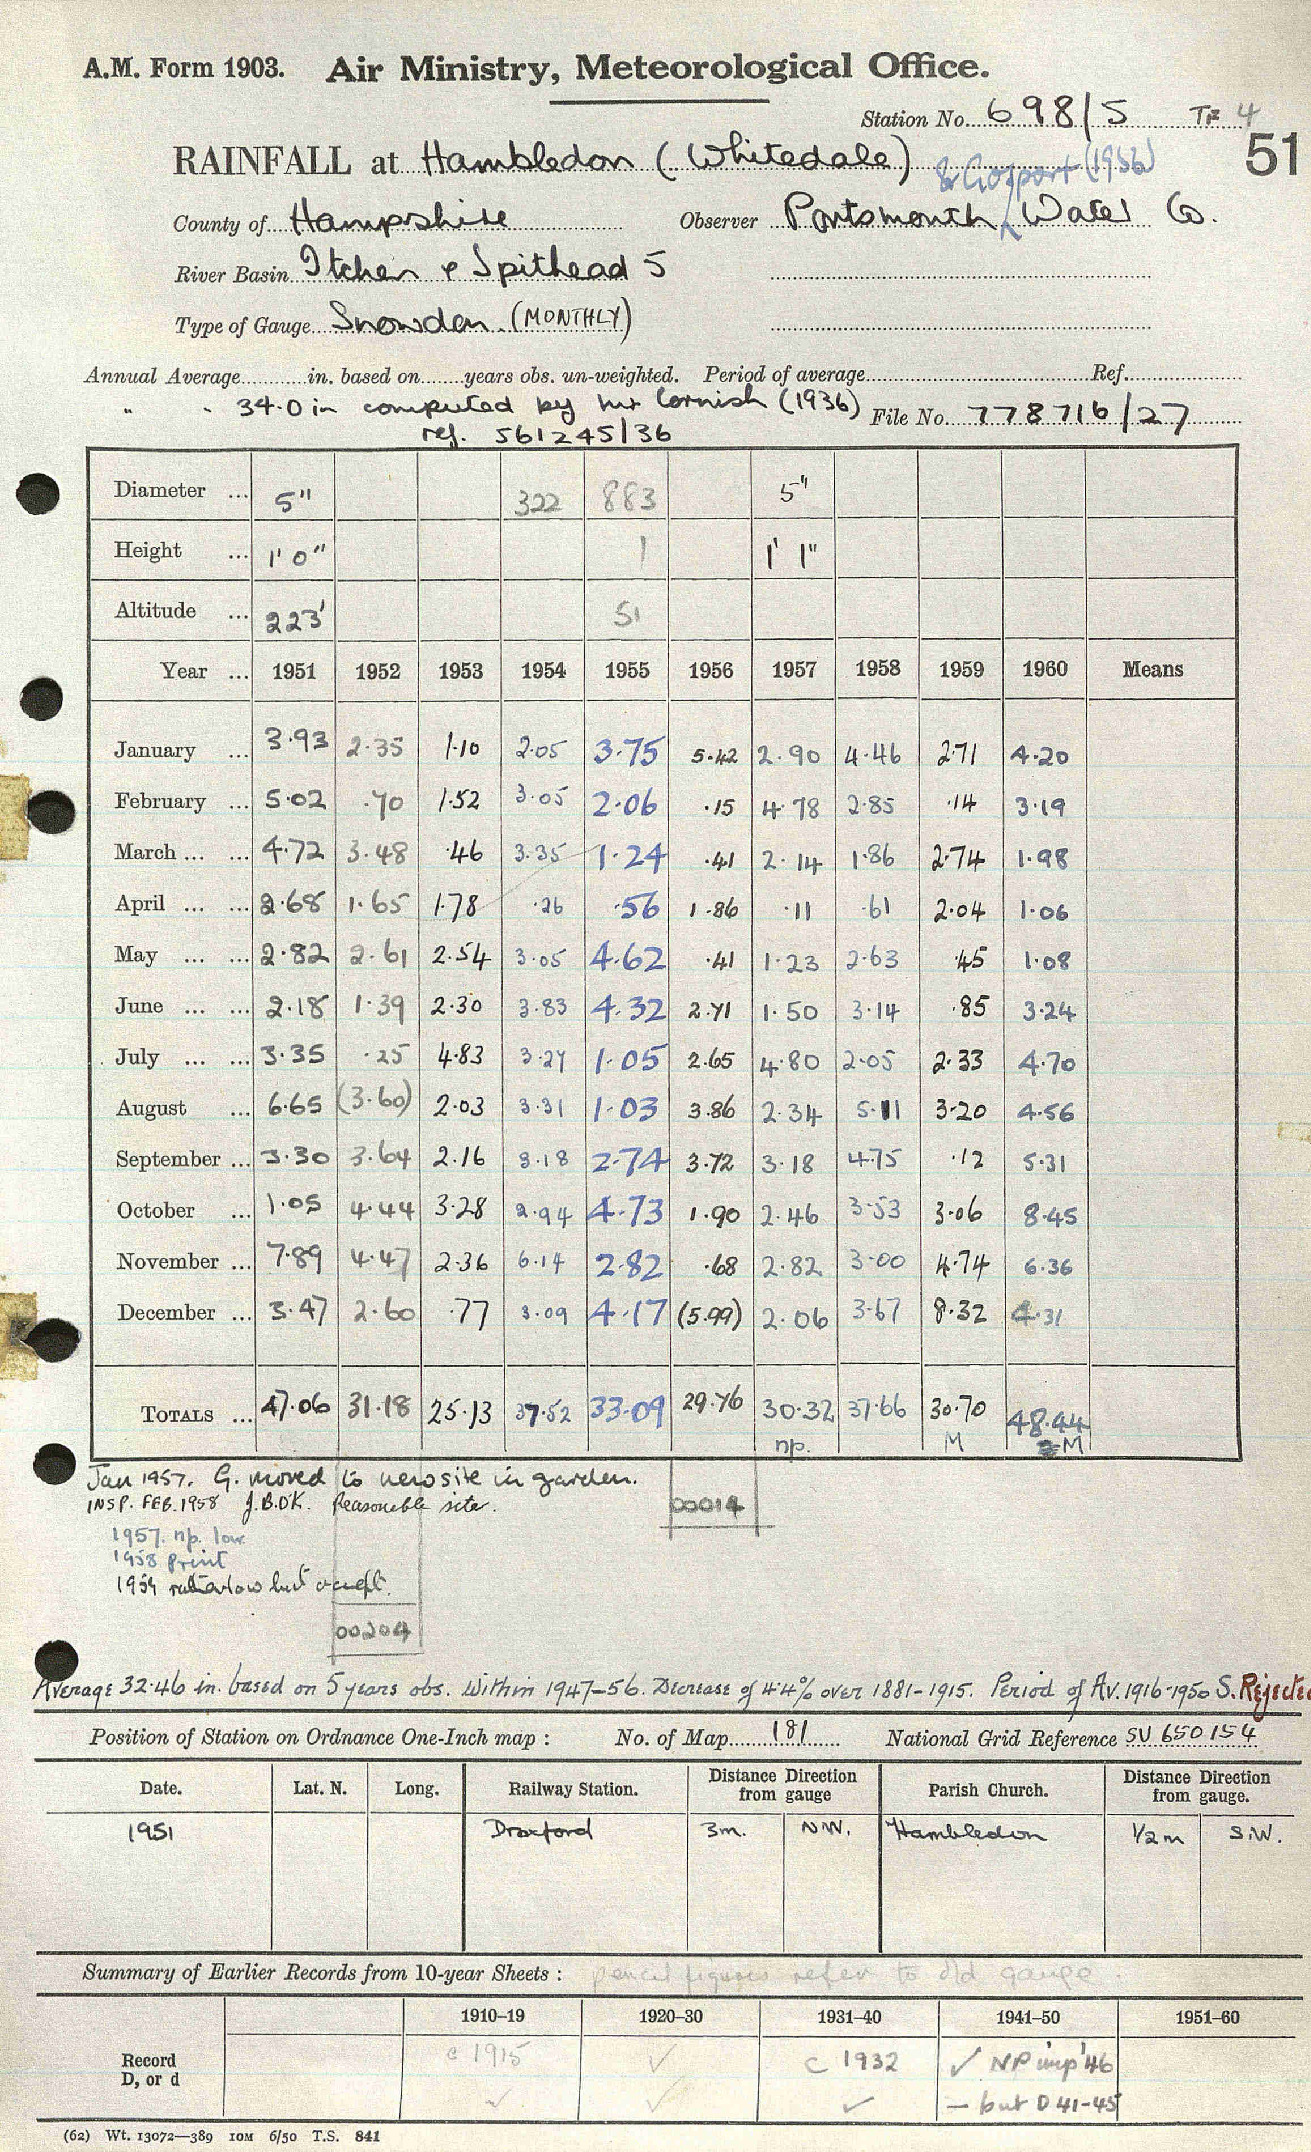 A.M. Form 1903. Air Ministry, Meteorological Office.
Station No. 698/5 TF 4
51
RAINFALL at Hambledon (Whitedale) & Gosport (1956)
County of Hampshire Observer Portsmouth Water Co.
River Basin Itchen & Spithead 5
Type of Gauge Snowdon (MONTHLY)
Annual Average in. based on years obs. un-weighted. Period of average Ref.
" " 34.0 in computed by Mr Cornish (1936) File No. 778716/27
ref. 561245/36
Diameter ... 5" 322 883 5"
Height ... 1' 0" 1 1' 1"
Altitude ... 223' 51
Year ... 1951 1952 1953 1954 1955 1956 1957 1958 1959 1960 Means
January ... 3.93 2.35 1.10 2.05 3.75 5.42 2.90 4.46 2.71 4.20
February ... 5.02 .70 1.52 3.05 2.06 .15 4.78 2.85 .14 3.19
March ... ... 4.72 3.48 .46 3.35 1.24 .41 2.14 1.86 2.74 1.98
April ... ... 2.68 1.65 1.78 .26 .56 1.86 .11 .61 2.04 1.06
May ... ... 2.82 2.61 2.54 3.05 4.62 .41 1.23 2.63 .45 1.08
June ... ... 2.18 1.39 2.30 3.83 4.32 2.71 1.50 3.14 .85 3.24
July ... ... 3.35 .25 4.83 3.27 1.05 2.65 4.80 2.05 2.33 4.70
August ... 6.65 (3.60) 2.03 3.31 1.03 3.86 2.34 5.11 3.20 4.56
September ... 3.30 3.64 2.16 3.18 2.74 3.72 3.18 4.75 .12 5.31
October ... 1.05 4.44 3.28 2.94 4.73 1.90 2.46 3.53 3.06 8.45
November ... 7.89 4.47 2.36 6.14 2.82 .68 2.82 3.00 4.74 6.36
December ... 3.47 2.60 .77 3.09 4.17 (5.99) 2.06 3.67 8.32 4.31
TOTALS ... 47.06 31.18 25.13 37.52 33.09 29.76 30.32 37.66 30.70 48.44
np. M M
Jan 1957. G. moved to new site in garden.
INSP. FEB. 1958 J.B.OK. Reasonable site. 00014
1957. np. low
1958 print
1959 rather low but accept.
00204
Average 32.46 in. based on 5 years obs. within 1947-56. Decrease of 4.4% over 1881-1915. Period of Av. 1916-1950 S. Rejected
Position of Station on Ordnance One-Inch map : No. of Map 181 National Grid Reference SU 650154
Date. Lat. N. Long. Railway Station. Distance Direction from gauge Parish Church. Distance Direction from gauge.
1951 Droxford 3m. NW. Hambledon 1/2 m S.W.
Summary of Earlier Records from 10-year Sheets : pencil figures refer to old gauge.
1910-19 1920-30 1931-40 1941-50 1951-60
Record c 1915 ✓ c 1932 ✓ NP imp '46
D, or d ✓ ✓ ✓ - but D 41-45
(62) Wt. 13072—389 10M 6/50 T.S. 841